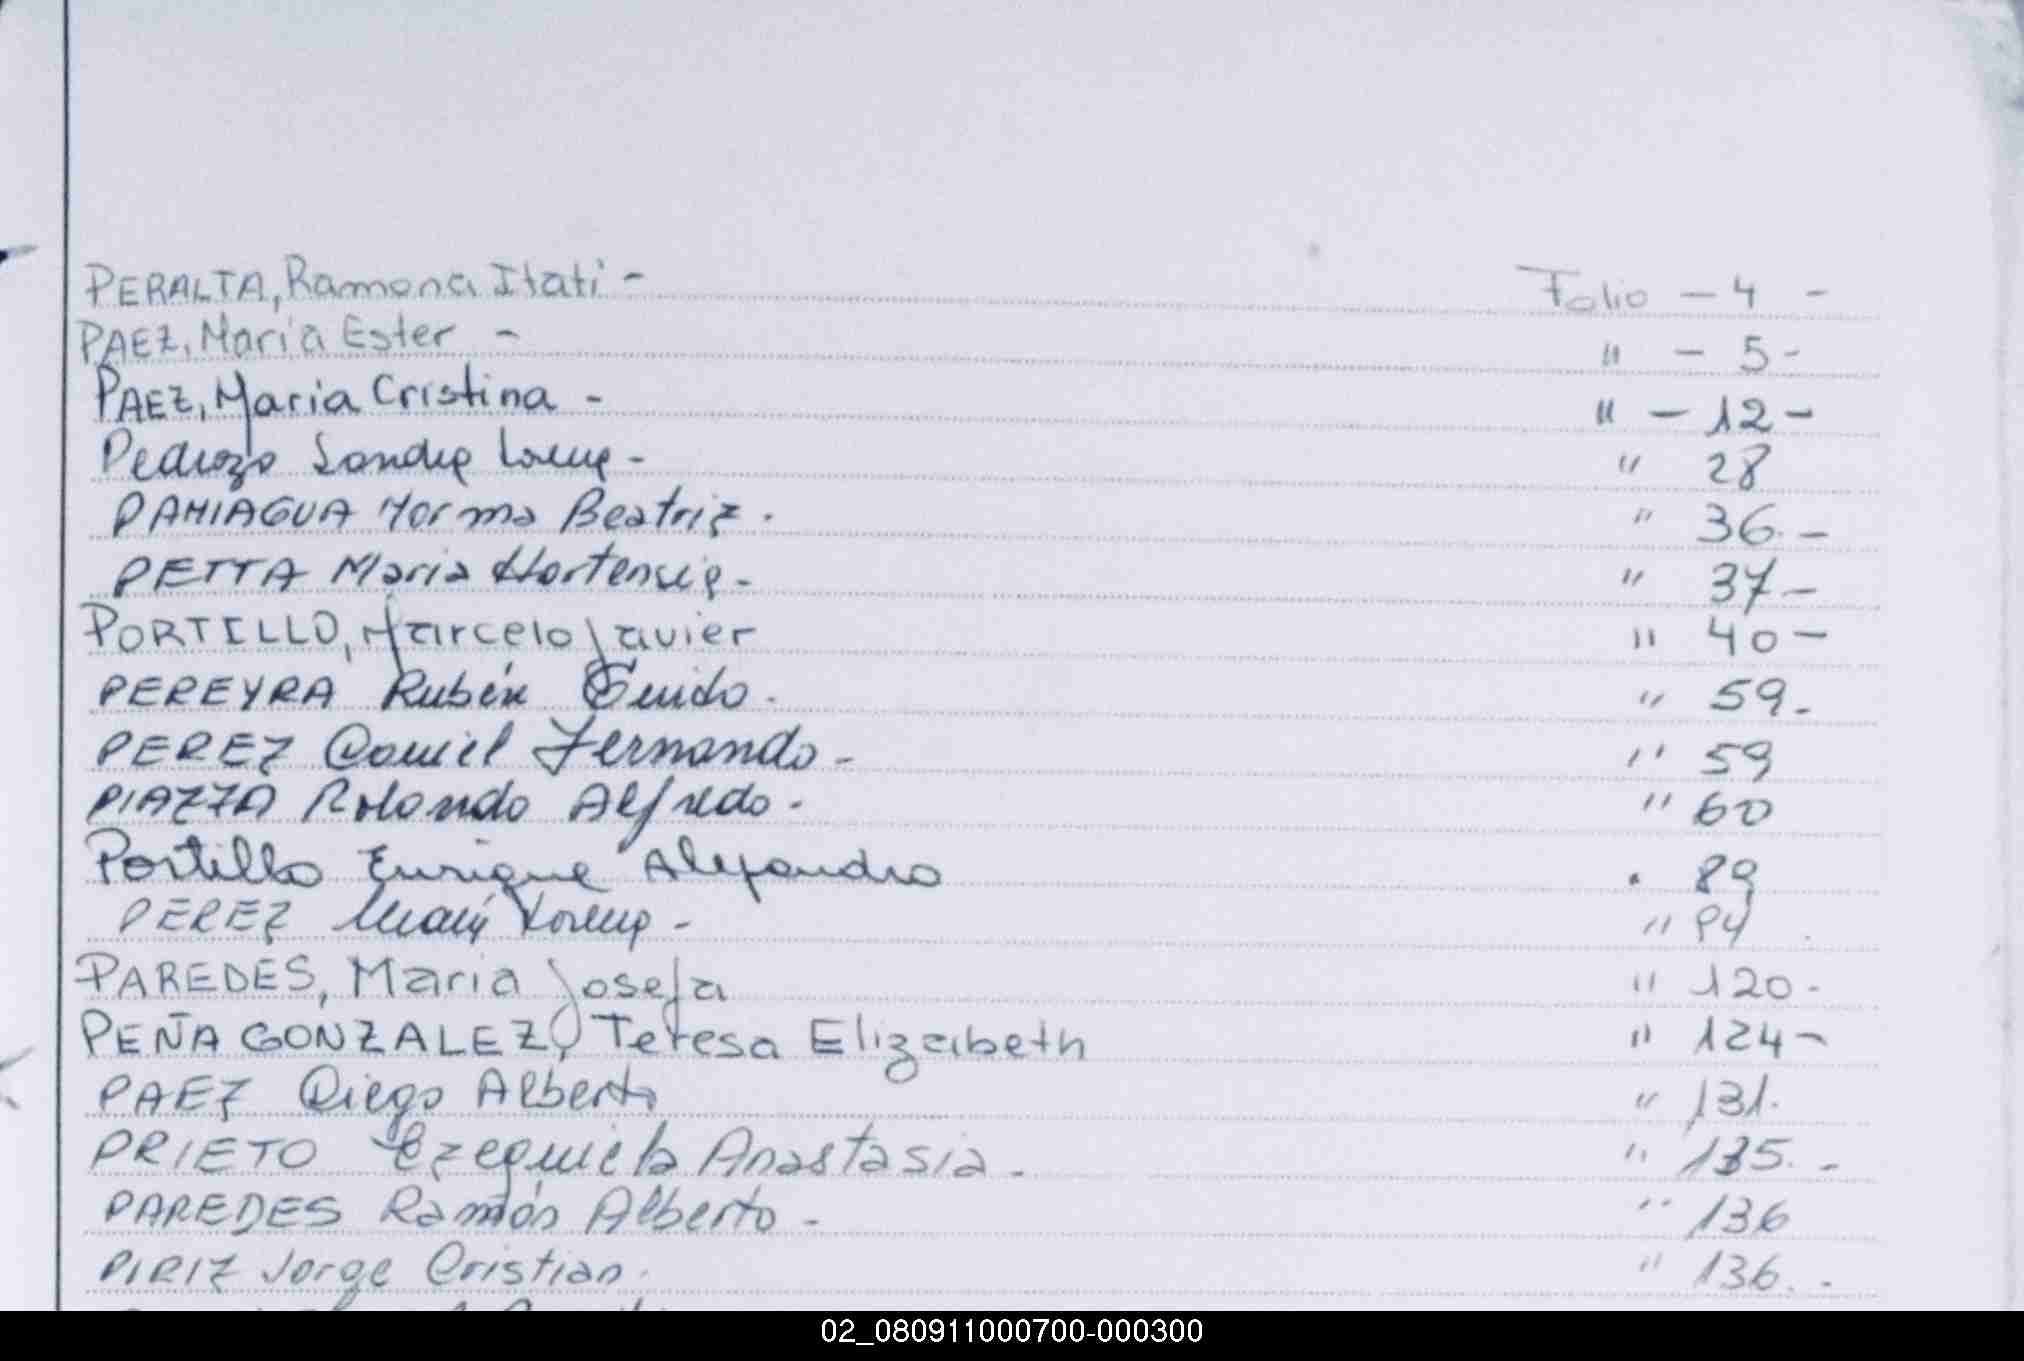 PERALTA, Ramona Itati - Folio - 4 -
PAEZ, Maria Ester - " - 5 -
PAEZ, Maria Cristina - " - 12 -
Pedrozo Sandra Lorena - " 28
PANIAGUA Norma Beatriz . " 36. -
PETTA Maria Hortensia - " 37 -
PORTILLO, Marcelo Javier " 40 -
PEREYRA Rubén Guido . " 59 -
PEREZ Daniel Fernando - " 59
PIAZZA Rolando Alfredo - " 60
Portillo Enrique Alejandro . 89
PEREZ Lorena - " 94
PAREDES, Maria Josefa " 120 -
PEÑA GONZALEZ, Teresa Elizabeth " 124 -
PAEZ Diego Alberto " 131.
PRIETO Ezequiela Anastasia - " 135. -
PAREDES Ramón Alberto - " 136
PIRIZ Jorge Cristian . " 136. -
02_080911000700-000300